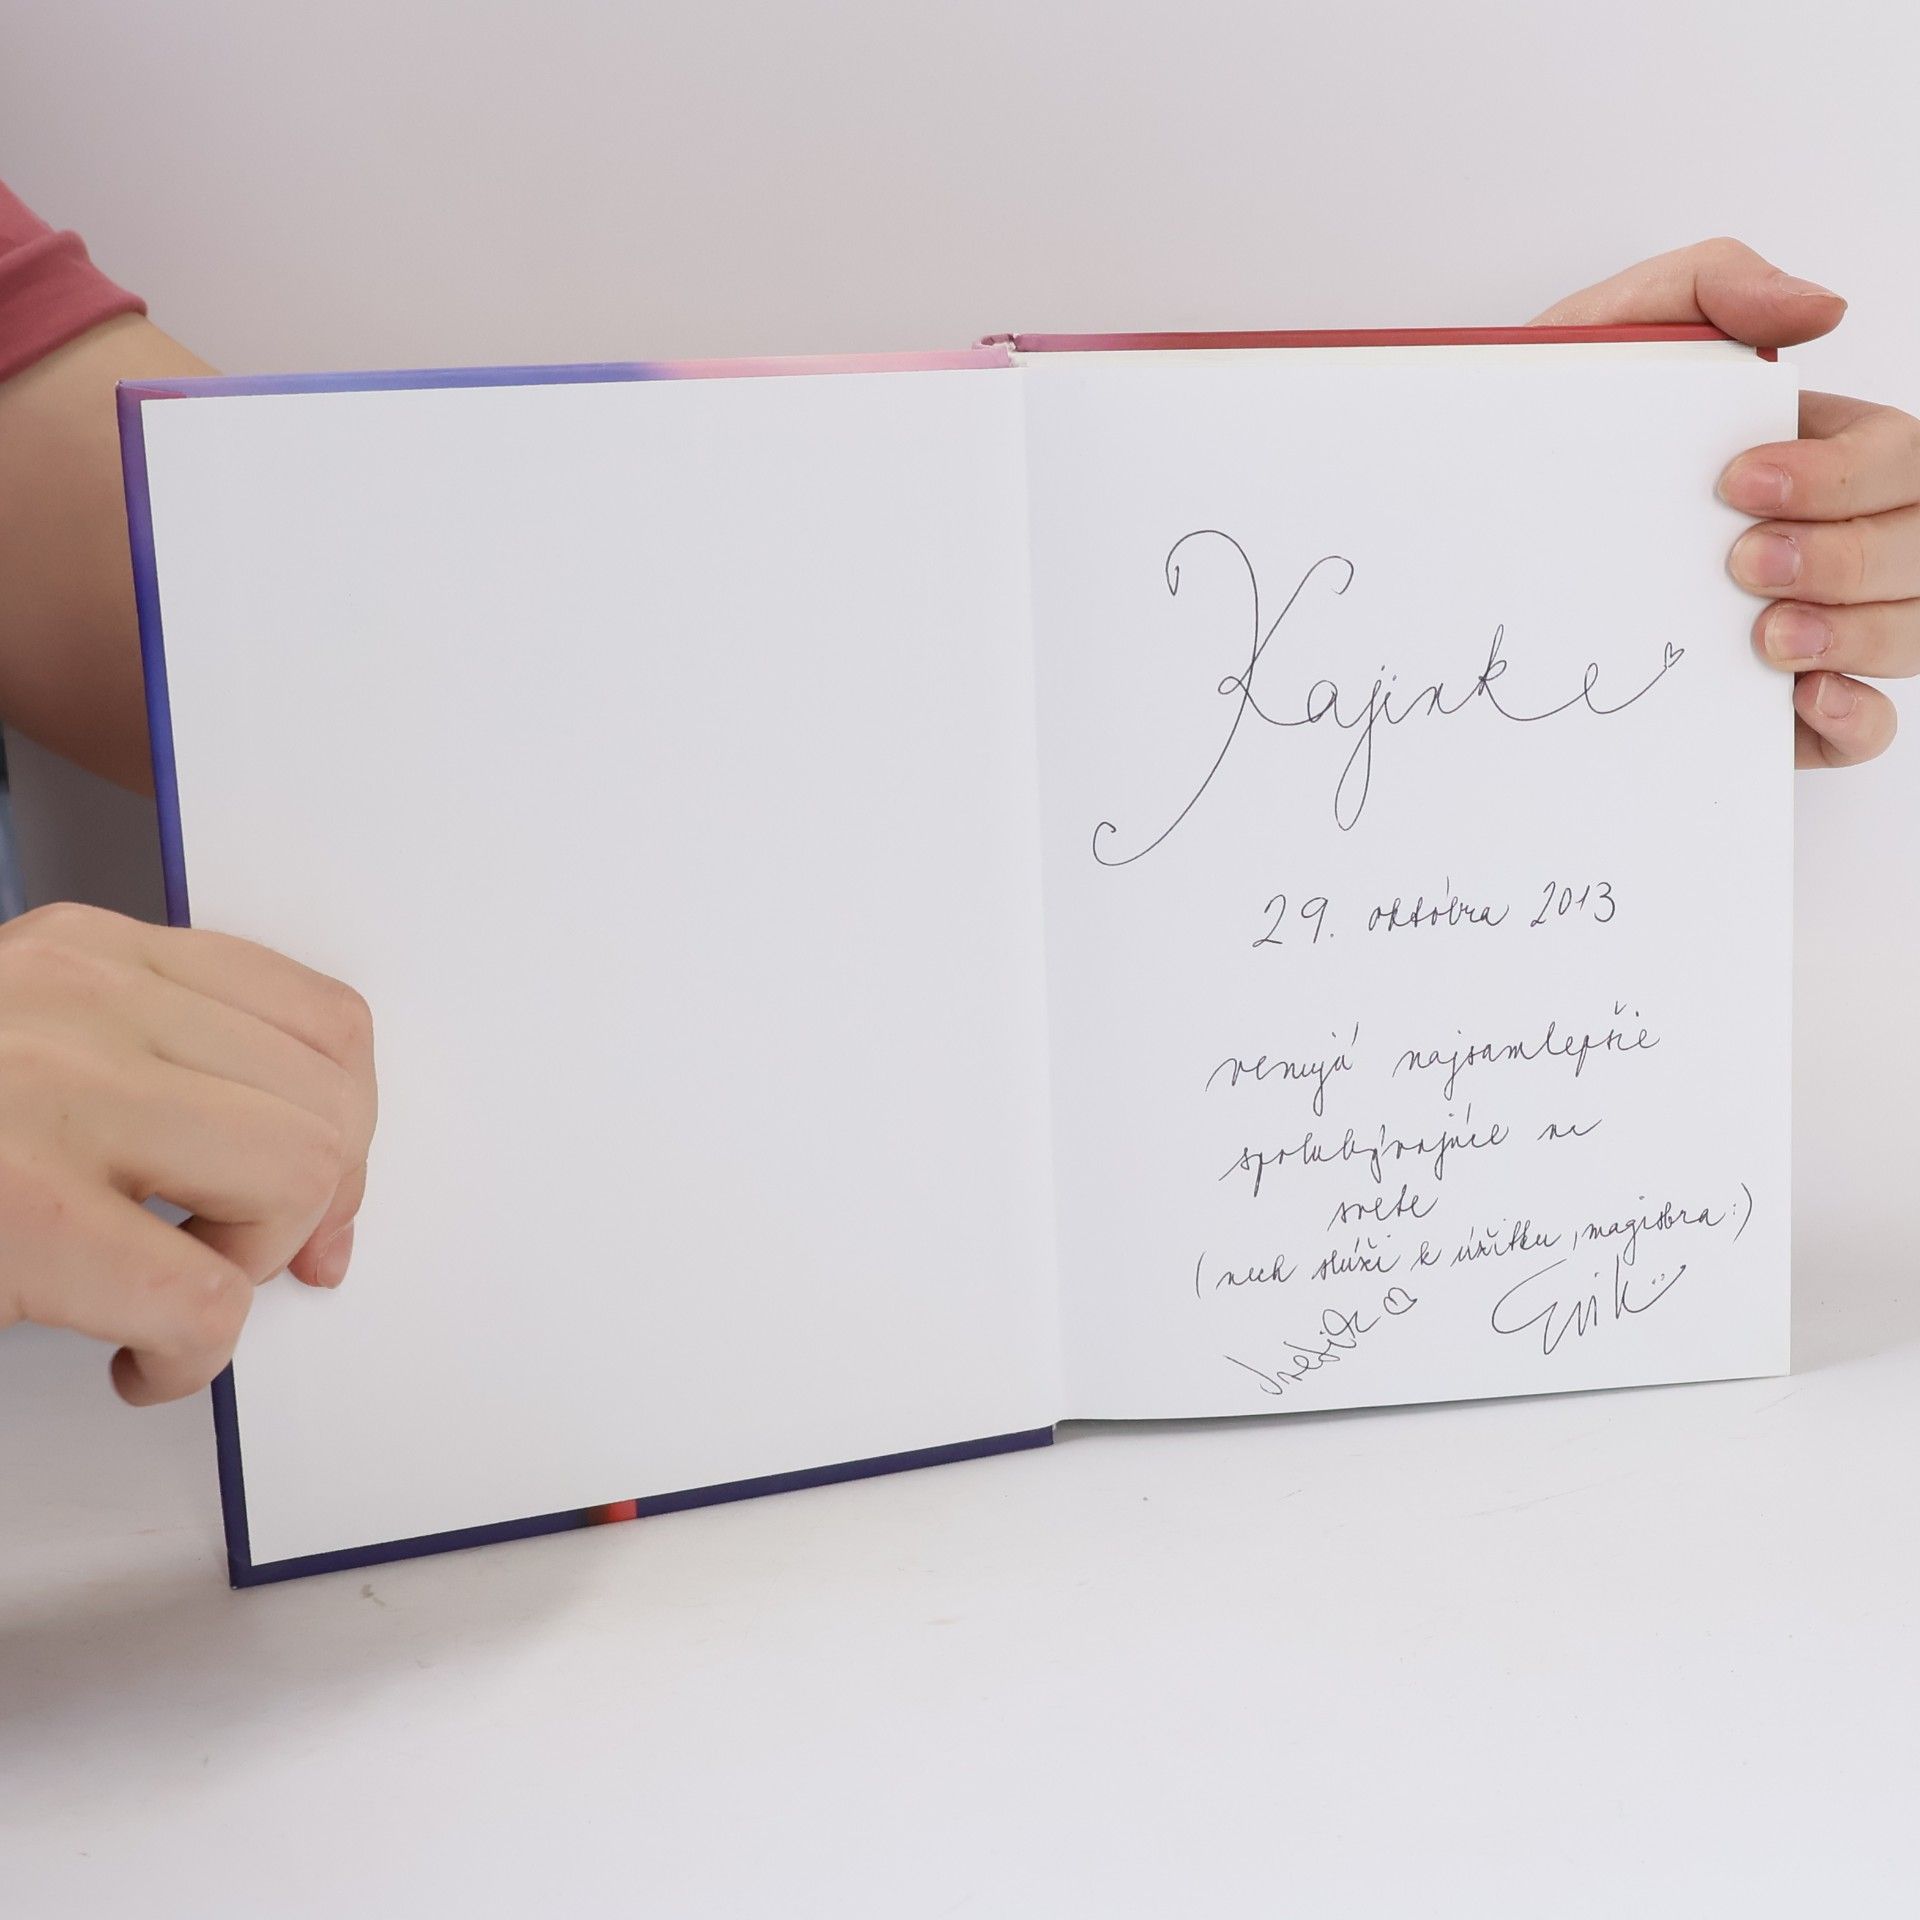 Kajinke
29. októbra 2013
venujú najsamlepšie
spolubývajúce na
svete
(nech slúži k úžitku, magistra :)
Evik